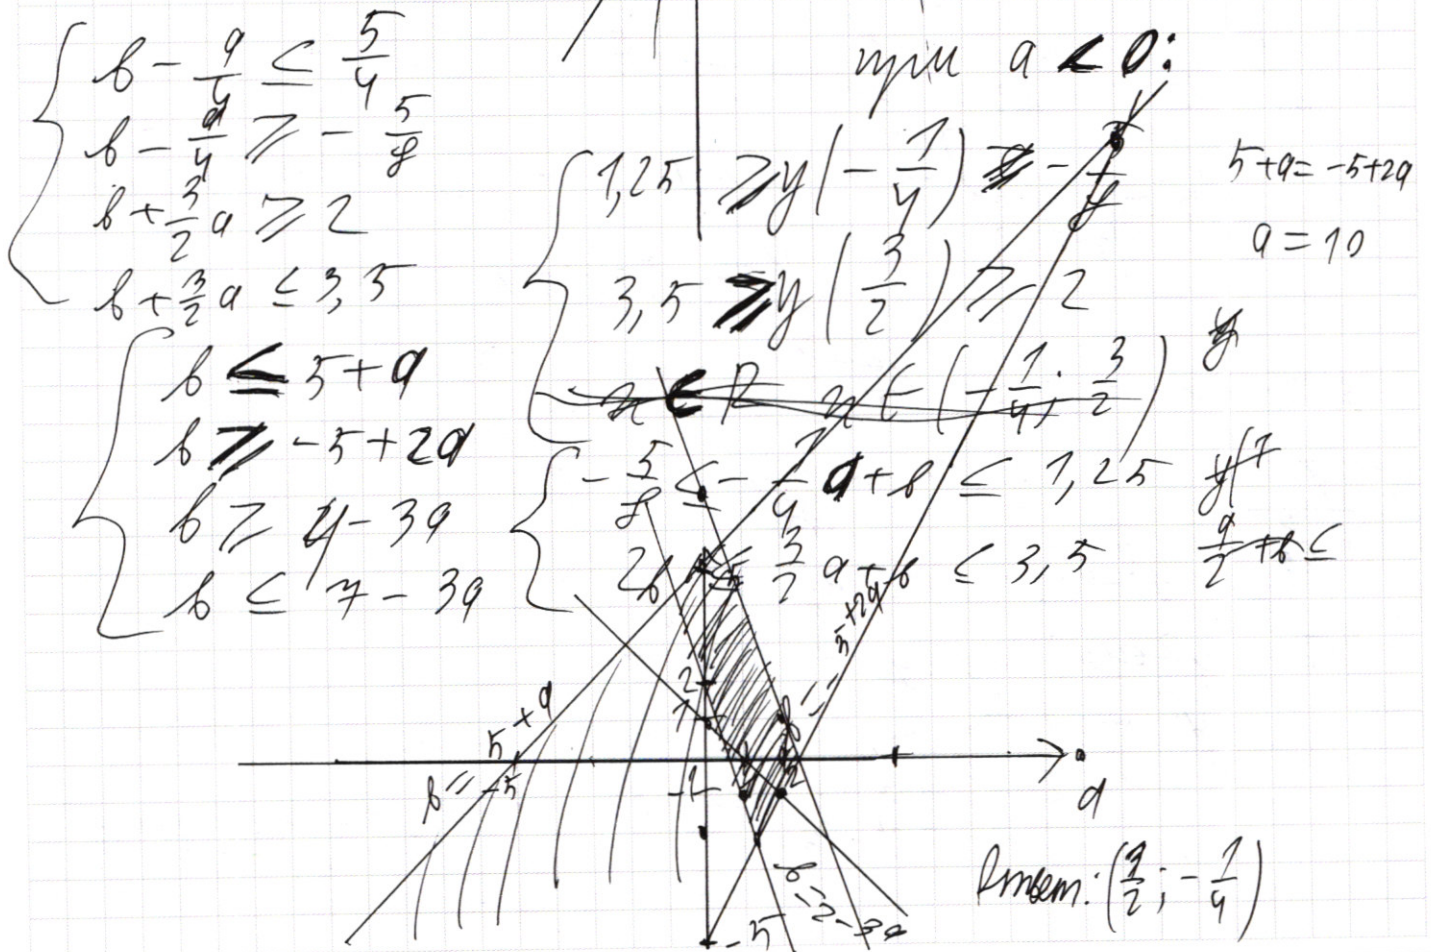 b - a/4 ≤ 5/4
b - a/4 ≥ - 5/8
b + 3/2 a ≥ 2
b + 3/2 a ≤ 3,5
b ≤ 5 + a
b ≥ -5 + 2a
b ≥ 4 - 3a
b ≤ 7 - 3a
при a < 0:
1,25 ≥ y(- 1/4) ≥ - 5/8
3,5 ≥ y(3/2) ≥ 2
x ∈ R x ∈ (- 1/4; 3/2)
- 5/8 ≤ - 1/4 a + b ≤ 1,25
2 ≤ 3/2 a + b ≤ 3,5
5+a = -5+2a
a = 10
y
a/2 + b ≤
b
5+2a
5+a
2
1
-1
2
b = -5
a
-5
b = 2-3a
Ответ: (3/2; - 1/4)